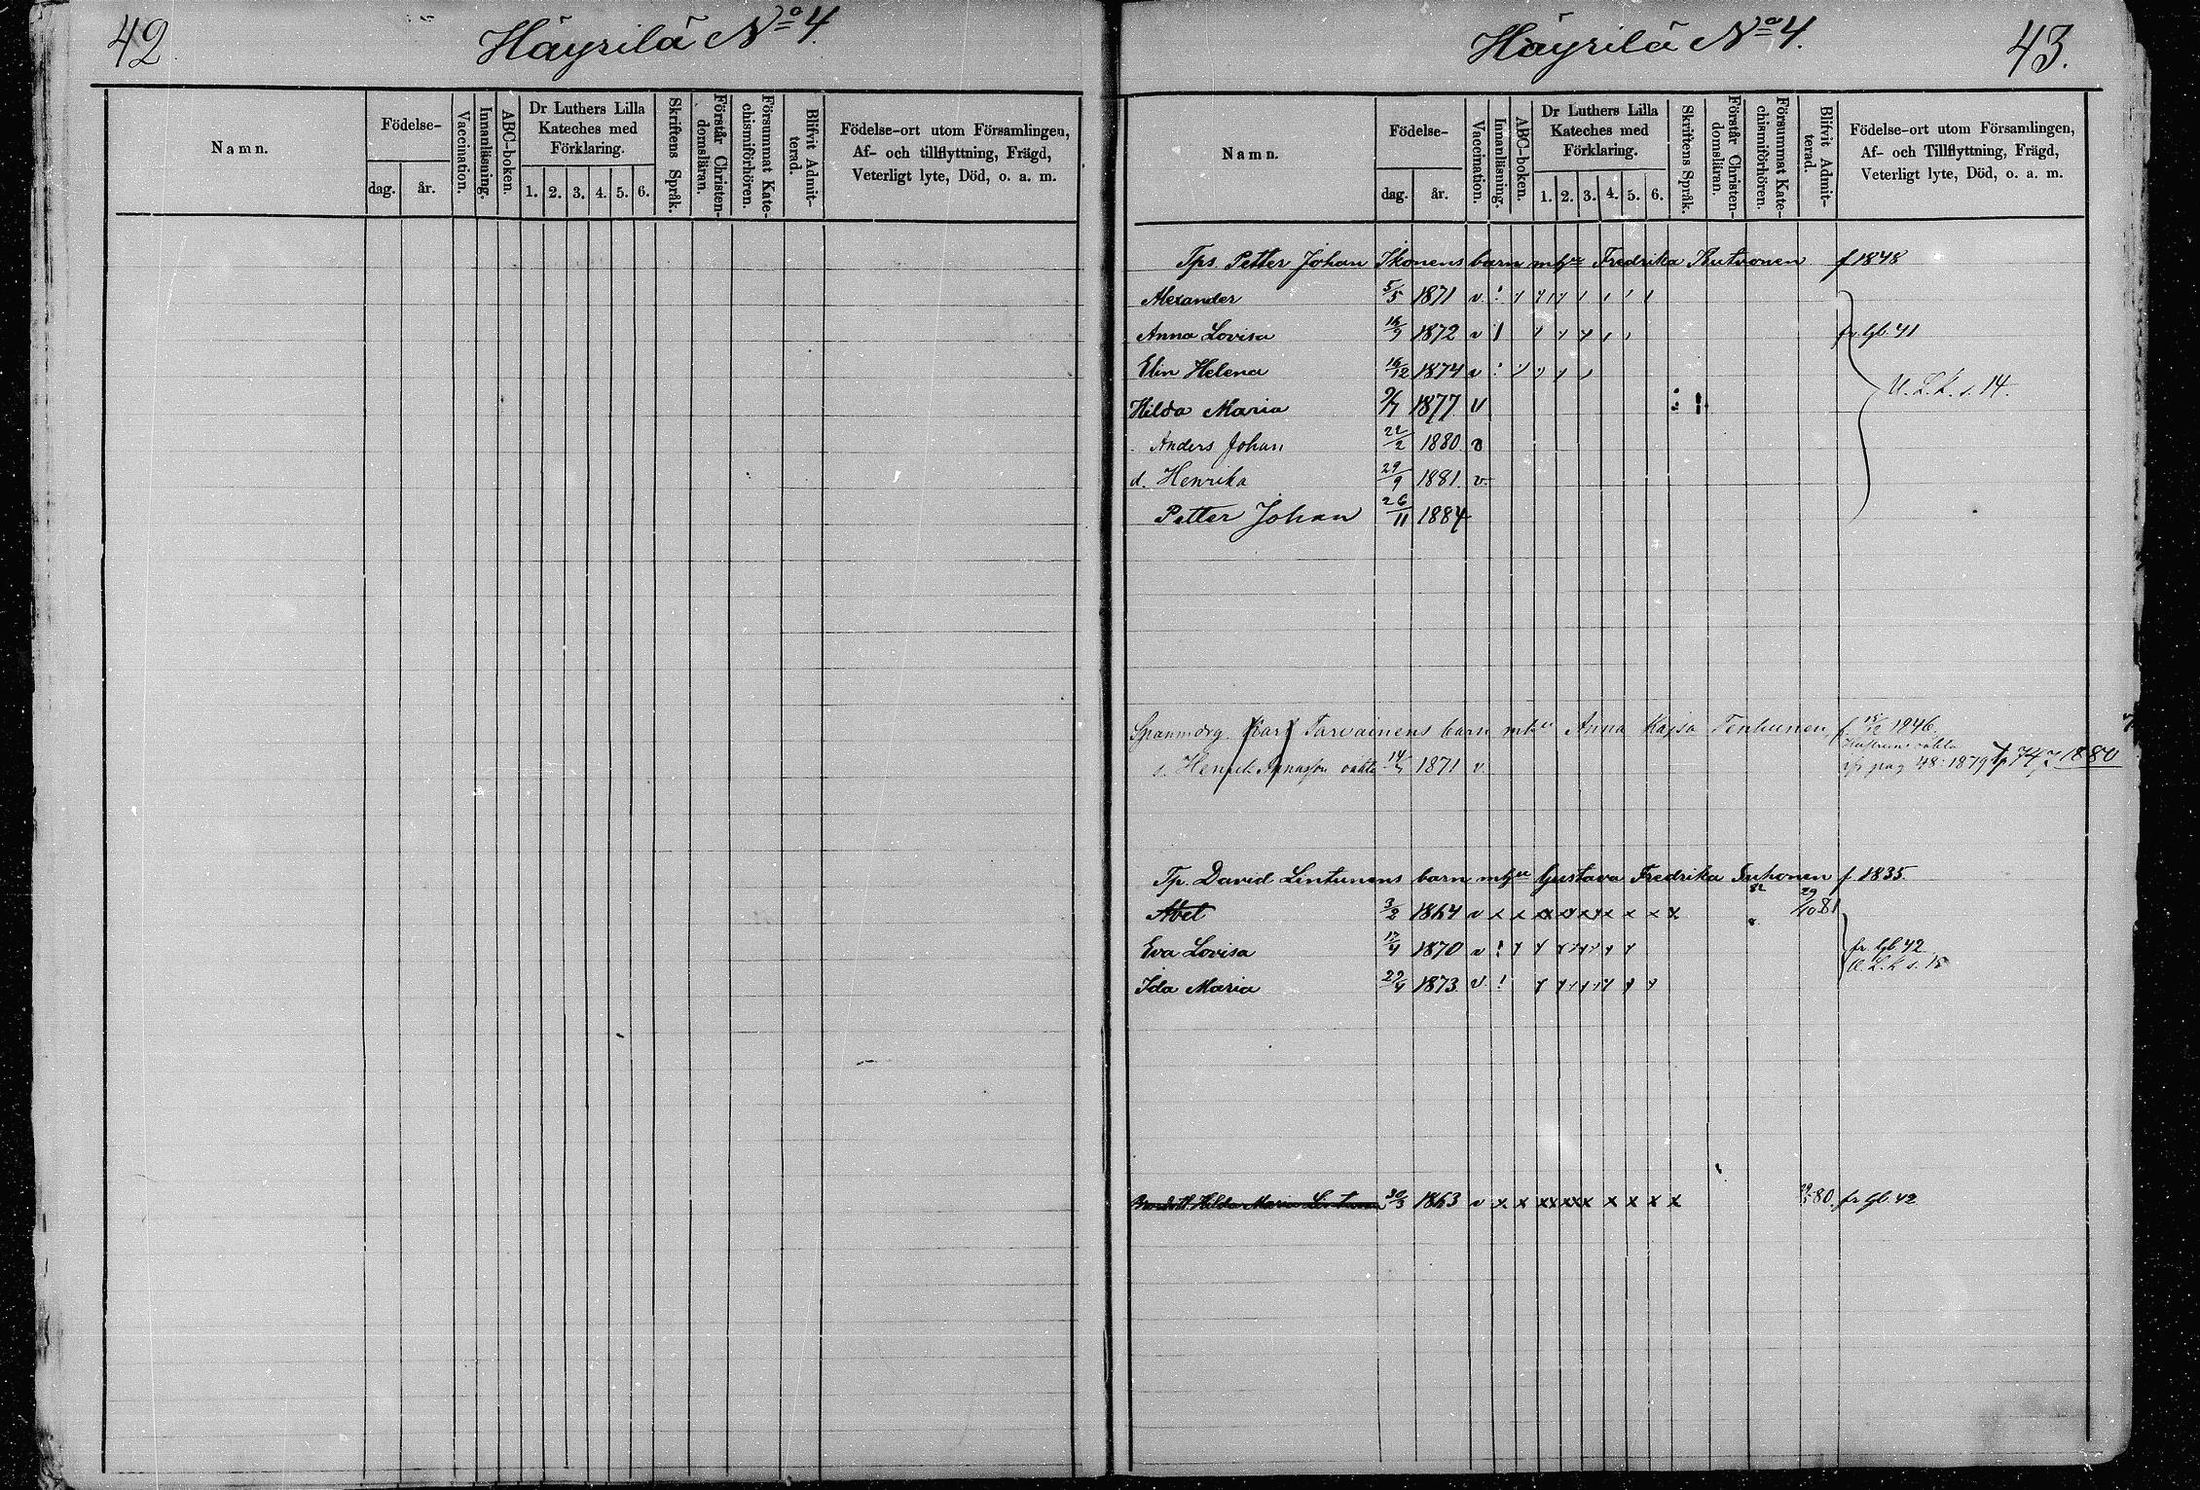 42.
Häyrilä No 4.
Namn.
Födelse-
dag.
år.
Vaccination.
Innanläsning.
ABC-boken.
Dr Luthers Lilla
Kateches med
Förklaring.
1. 2. 3. 4. 5. 6.
Skriftens Språk.
Förstår Christen-
domsläran.
Försummat Kate-
chismiförhören.
Blifvit Admit-
terad.
Födelse-ort utom Församlingen,
Af- och tillflyttning, Frägd,
Veterligt lyte, Död, o. a. m.
Häyrilä No 4.
43.
Namn.
Födelse-
dag.
år.
Vaccination.
Innanläsning.
ABC-boken.
Dr Luthers Lilla
Kateches med
Förklaring.
1. 2. 3. 4. 5. 6.
Skriftens Språk.
Förstår Christen-
domsläran.
Försummat Kate-
chismiförhören.
Blifvit Admit-
terad.
Födelse-ort utom Församlingen,
Af- och Tillflyttning, Frägd,
Veterligt lyte, Död, o. a. m.
Tps. Petter Johan Ikonens barn Fredrika f 1848
Alexander 5/5 1871 v
Anna Lovisa 16/9 1872 v fr. Gb. 41
Elin Helena 16/12 1874 v
U. L. K. s. 14.
Hilda Maria 1877 v
Anders Johan 22/2 1880. v
d. Henrika 29/9 1881. v.
Petter Johan 26/11 1884
Tarvainens barn Anna Kajsa Tenhunen f. 1846
s. 1871 v. pag 48: 1879 1880
Tp. David Lintunens barn Gustava Fredrika Suhonen f. 1835.
Abel 3/2 1864 v x x x x x x x x x 29/10 81
Eva Lovisa 17/4 1870 v fr. Gb. 42
U. L. K s. 15
Ida Maria 29/4 1873 v
Hilda Maria 30/3 1863 v x x x x x x x x x 80. fr. Gb. 42